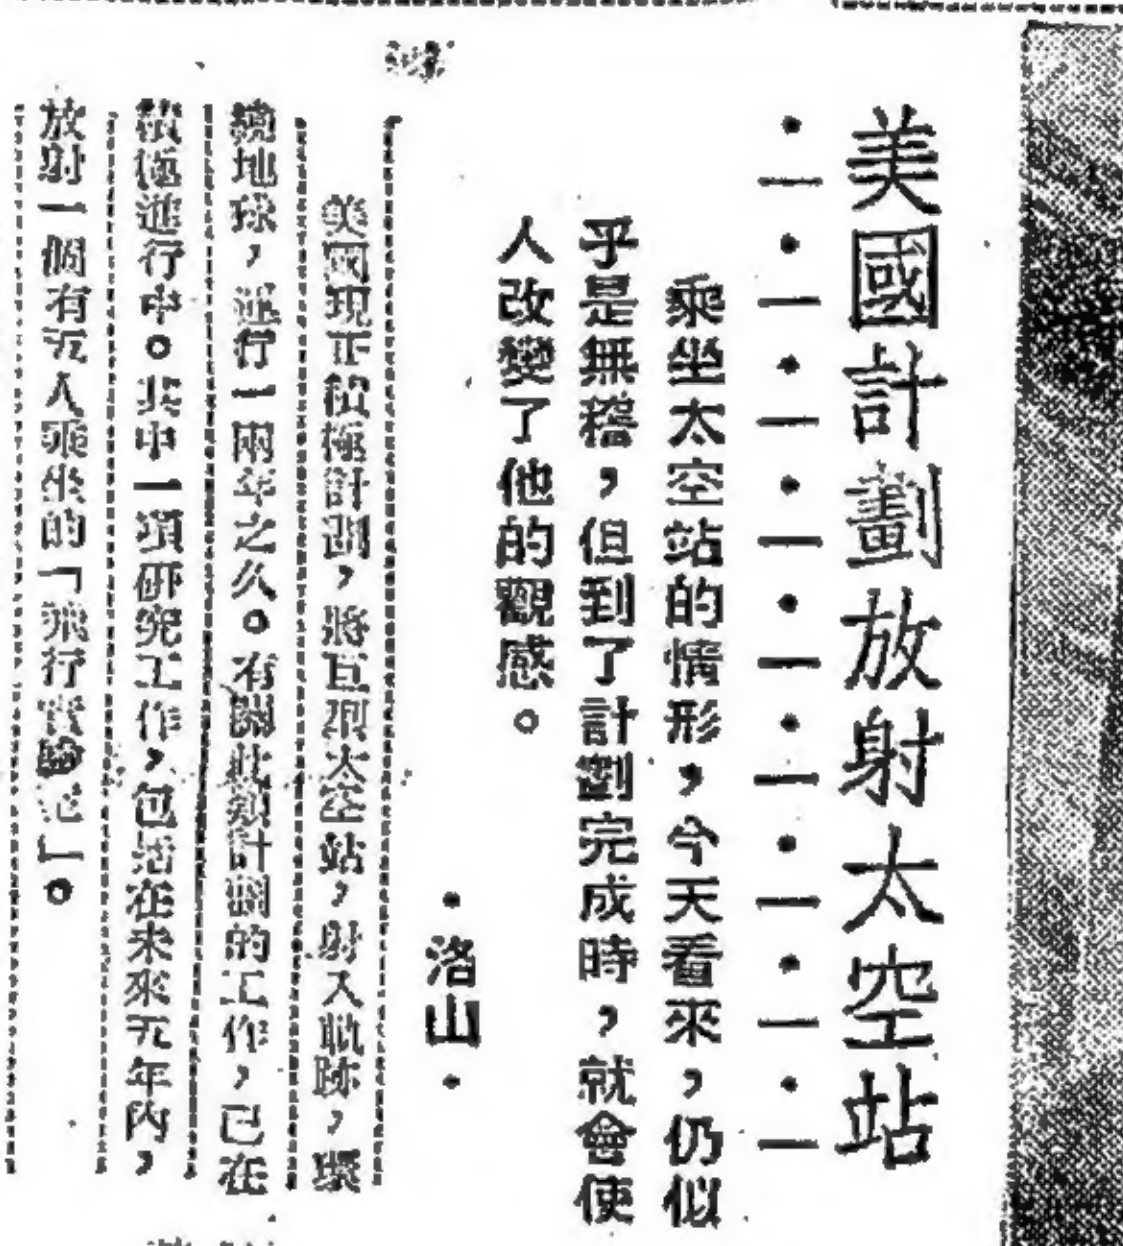 美國計劃放射太空站
乘坐太空站的情形，今天看來，仍似
乎是無稽，但到了計劃完成時，就會使
人改變了他的觀感。
·洛山·
美國現正積極計劃，將巨型太空站，射入軌跡，環
繞地球，進行一兩年之久。有關此類計劃的工作，已在
積極進行中。其中一項研究工作，包括在未來五年內，
放射一個有五人乘坐的「飛行實驗室」。